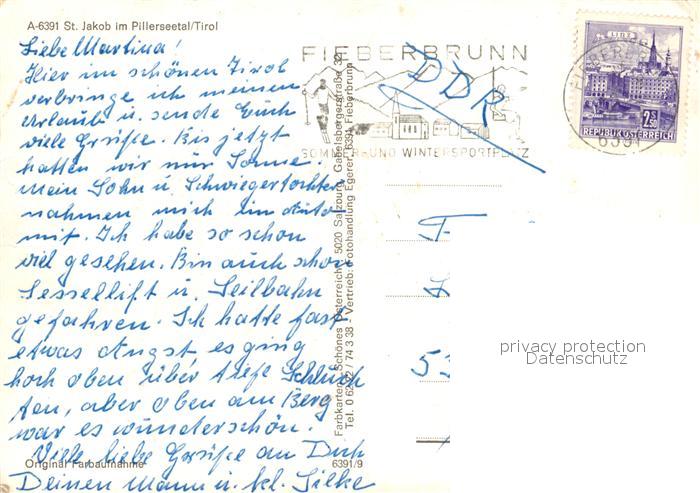 A-6391 St. Jakob im Pillerseetal/Tirol
Liebe Martina!
Hier im schönen Tirol
verbringe ich meinen
Urlaub u. sende Euch
viele Grüße. Bis jetzt
hatten wir nur Sonne.
Mein Sohn u. Schwiegertochter
nahmen mich im Auto
mit. Ich habe so schon
viel gesehen. Bin auch schon
Sessellift u. Seilbahn
gefahren. Ich hatte fast
etwas Angst es ging
hoch oben über tiefe Schluch
ten, aber oben am Berg
war es wunderschön.
Viele liebe Grüße an Dich
Deinen Mann u. kl. Silke
Original Farbaufnahme
6391/9
Farbkarten „Schönes Österreich", 5020 Salzburg, Gabelsbergerstraße 32
Tel. 0 62 22 / 74 3 38 Vertrieb: Fotohandlung Egerer, 6391 Fieberbrunn
FIEBERBRUNN
SOMMER- UND WINTERSPORTPLATZ
DDR
LINZ
2.50
REPUBLIK ÖSTERREICH
6391
F
53
privacy protection
Datenschutz